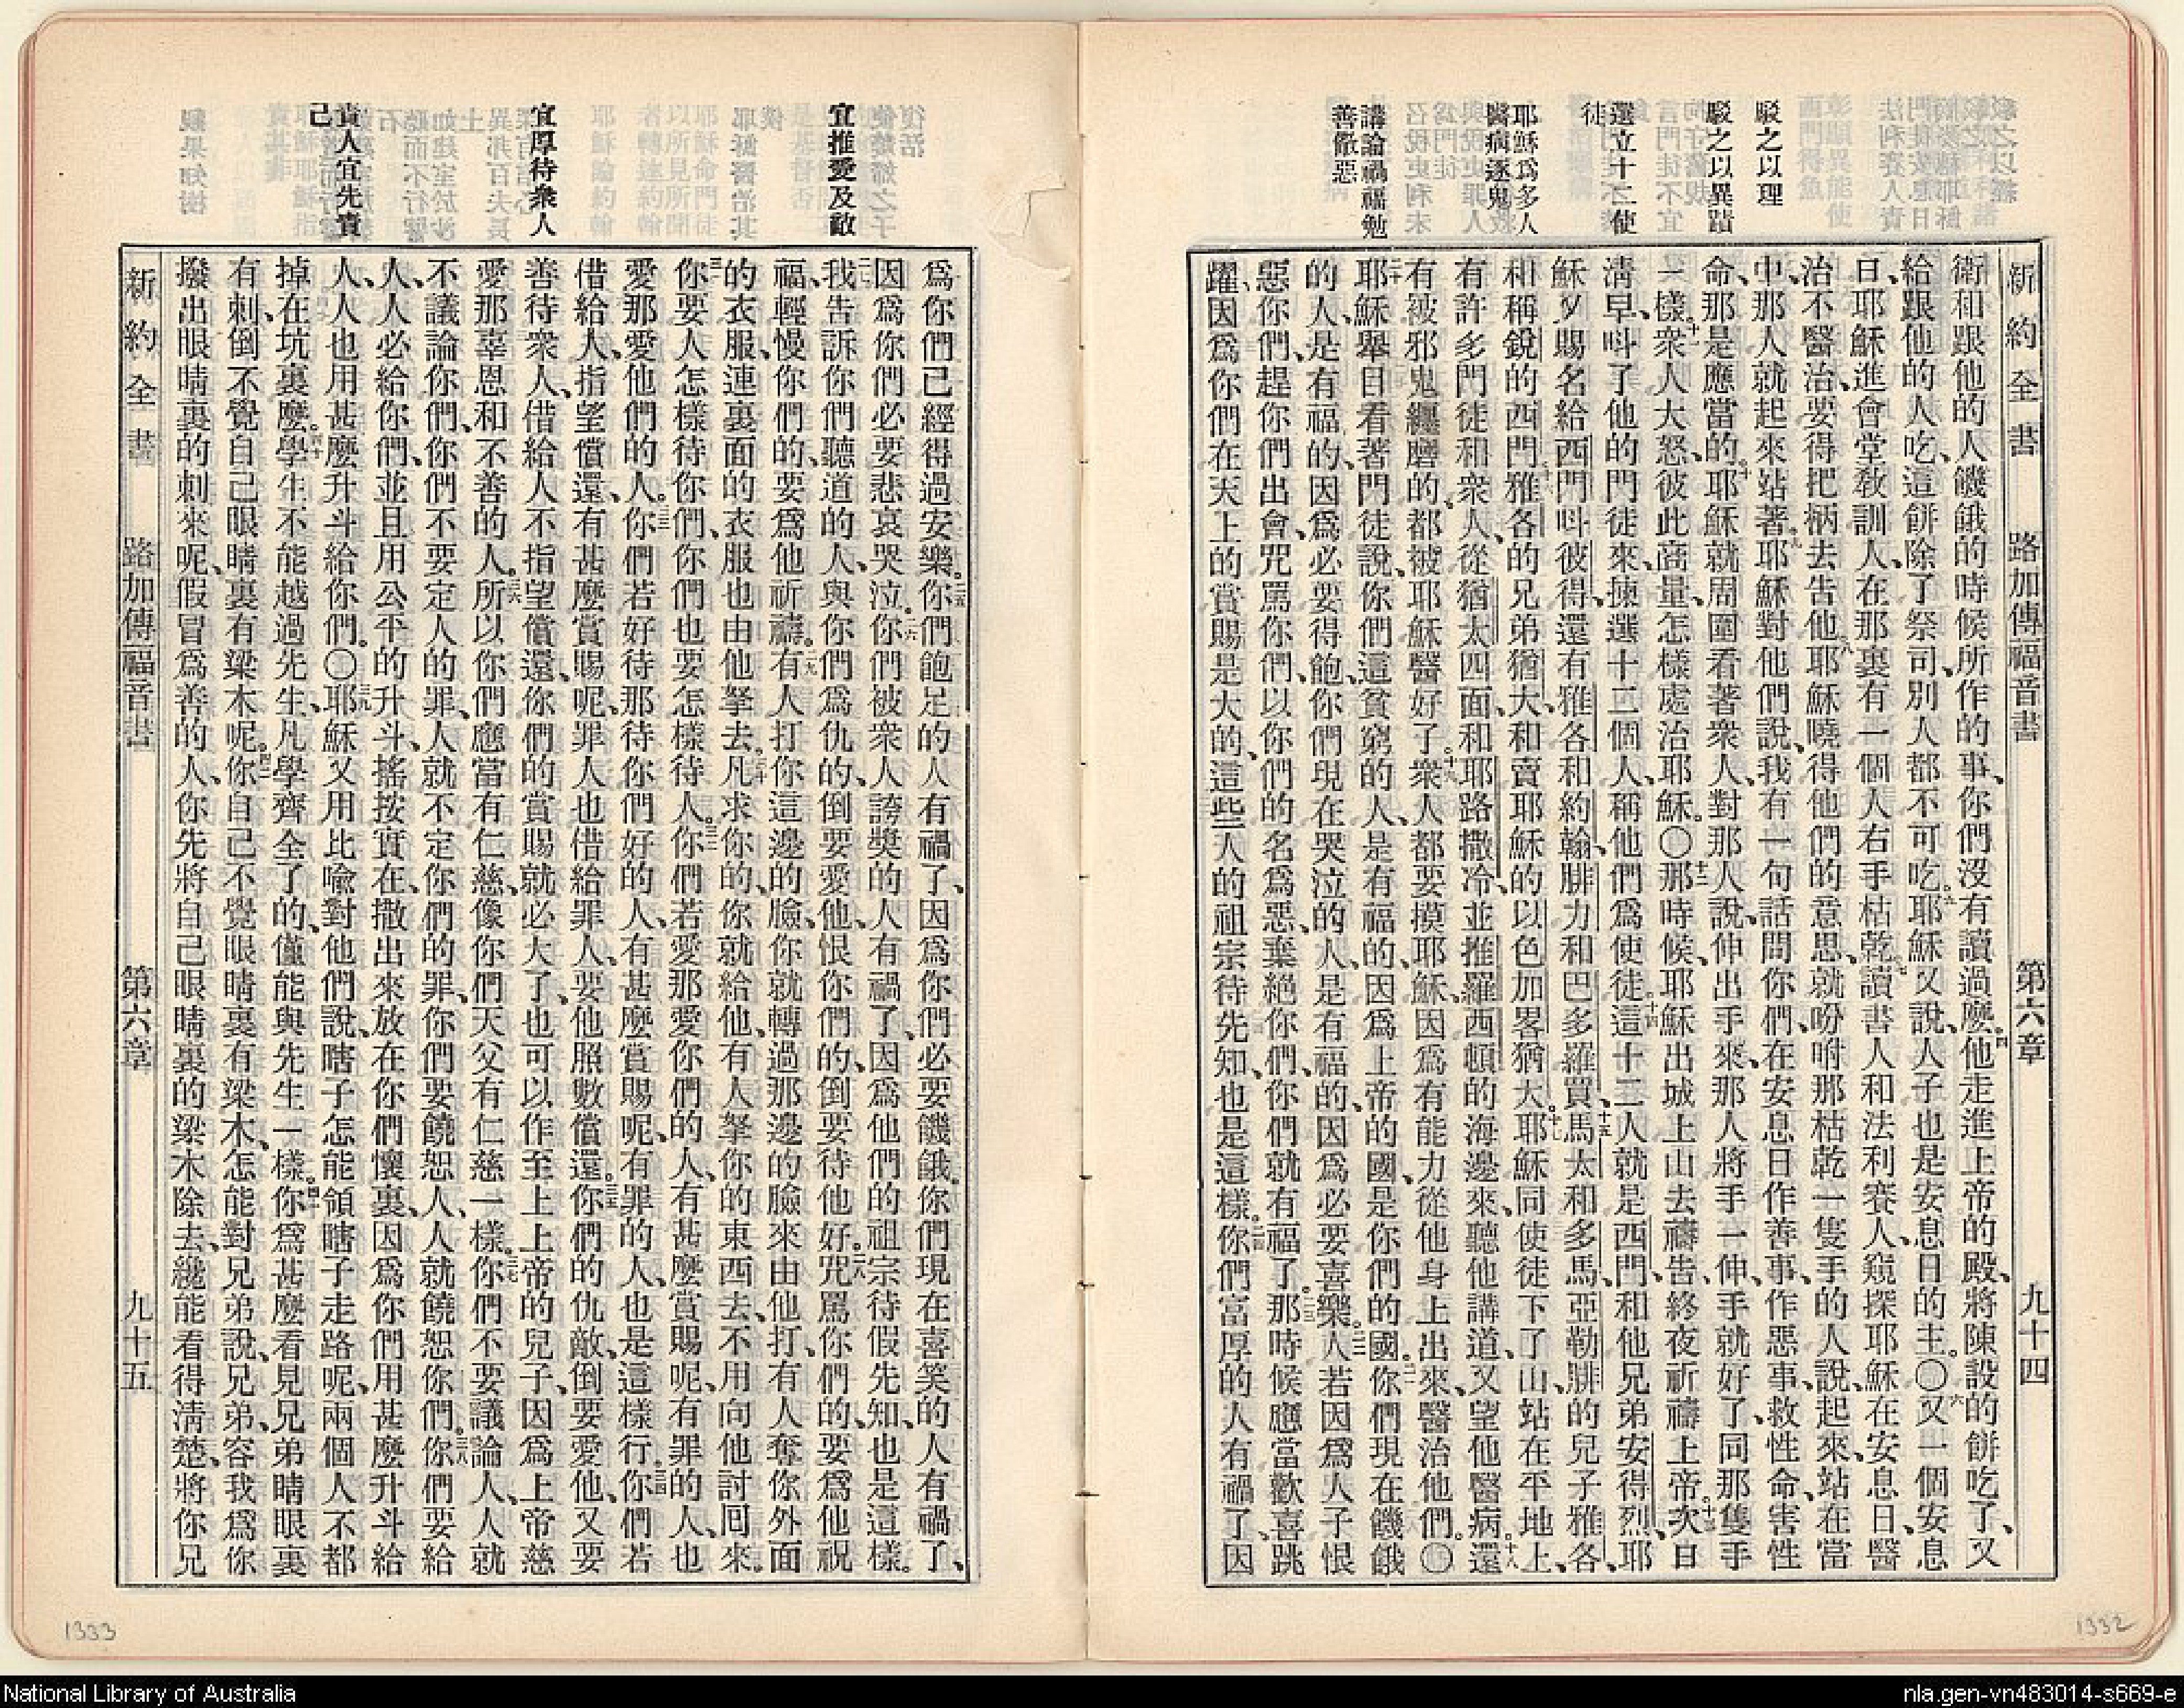 新約全書 路加傳福音書 第六章 九十四
駁之以理
駁之以異蹟
選立十二使
徒
耶穌爲多人
醫病逐鬼
講論禍福勉
善儆惡
衛和跟他的人饑餓的時候所作的事、你們沒有讀過麼。四他走進上帝的殿、將陳設的餅吃了、又
給跟他的人吃、這餅除了祭司、別人都不可吃。五耶穌又說、人子也是安息日的主。〇六又一個安息
日、耶穌進會堂教訓人、在那裏有一個人右手枯乾。七讀書人和法利賽人、窺探耶穌在安息日、醫
治不醫治、要得把柄去告他。八耶穌曉得他們的意思、就吩咐那枯乾一隻手的人說、起來、站在當
中、那人就起來站著。九耶穌對他們說、我有一句話問你們、在安息日作善事、作惡事、救性命、害性
命、那是應當的。十耶穌就周圍看著衆人、對那人說、伸出手來、那人將手一伸、手就好了、同那隻手
一樣。十一衆人大怒、彼此商量、怎樣處治耶穌。〇十二那時候、耶穌出城上山去禱告、終夜祈禱上帝。十三次日
淸早、呌了他的門徒來、揀選十二個人、稱他們爲使徒。十四這十二人就是西門、和他兄弟安得烈、耶
穌又賜名給西門呌彼得、還有雅各和約翰、腓力和巴多羅買、十五馬太和多馬、亞勒腓的兒子雅各、
和稱銳的西門、十六雅各的兄弟猶大、和賣耶穌的以色加畧猶大。十七耶穌同使徒下了山、站在平地上、
有許多門徒和衆人、從猶太四面、和耶路撒冷、並推羅西頓的海邊來、聽他講道、又望他醫病。十八還
有被邪鬼纏磨的、都被耶穌醫好了。十九衆人都要摸耶穌、因爲有能力從他身上出來、醫治他們。〇
二十耶穌舉目看著門徒說、你們這貧窮的人、是有福的、因爲上帝的國、是你們的國。二一你們現在饑餓
的人、是有福的、因爲必要得飽、你們現在哭泣的人、是有福的、因爲必要喜樂。二二人若因爲人子恨
惡你們、趕你們出會、咒罵你們、以你們的名爲惡、棄絕你們、你們就有福了。二三那時候應當歡喜跳
躍、因爲你們在天上的賞賜是大的、這些人的祖宗待先知、也是這樣。二四你們富厚的人有禍了、因
宜推愛及敵
宜厚待衆人
責人宜先責
己
爲你們已經得過安樂。二五你們飽足的人有禍了、因爲你們必要饑餓。你們現在喜笑的人有禍了、
因爲你們必要悲哀哭泣。二六你們被衆人誇獎的人有禍了、因爲他們的祖宗待假先知、也是這樣。
二七我告訴你們聽道的人、與你們爲仇的、倒要愛他、恨你們的、倒要待他好。二八咒罵你們的、要爲他祝
福、輕慢你們的、要爲他祈禱。二九有人打你這邊的臉、你就轉過那邊的臉來由他打、有人奪你外面
的衣服、連裏面的衣服也由他拏去。三十凡求你的、你就給他、有人拏你的東西去、不用向他討囘來。
三一你要人怎樣待你們、你們也要怎樣待人。三二你們若愛那愛你們的人、有甚麼賞賜呢、有罪的人、也
愛那愛他們的人。三三你們若好待那待你們好的人、有甚麼賞賜呢、有罪的人、也是這樣行。三四你們若
借給人、指望償還、有甚麼賞賜呢、罪人也借給罪人、要他照數償還。三五你們的仇敵、倒要愛他、又要
善待衆人、借給人不指望償還、你們的賞賜就必大了、也可以作至上上帝的兒子、因爲上帝慈
愛那辜恩和不善的人。三六所以你們應當有仁慈、像你們天父有仁慈一樣。三七你們不要議論人、人就
不議論你們、你們不要定人的罪、人就不定你們的罪、你們要饒恕人、人就饒恕你們。三八你們要給
人、人必給你們、並且用公平的升斗、搖按實在、撒出來放在你們懷裏、因爲你們用甚麼升斗給
人、人也用甚麼升斗給你們。〇三九耶穌又用比喻對他們說、瞎子怎能領瞎子走路呢、兩個人不都
掉在坑裏麼。四十學生不能越過先生、凡學齊全了的、僅能與先生一樣。四一你爲甚麼看見兄弟睛眼裏
有刺、倒不覺自己眼睛裏有梁木呢。四二你自己不覺眼睛裏有梁木、怎能對兄弟說、兄弟、容我爲你
撥出眼睛裏的刺來呢、假冒爲善的人、你先將自己眼睛裏的梁木除去、纔能看得淸楚、將你兄
新約全書 路加傳福音書 第六章 九十五
1333
1332
National Library of Australia
nla.gen-vn483014-s669-e